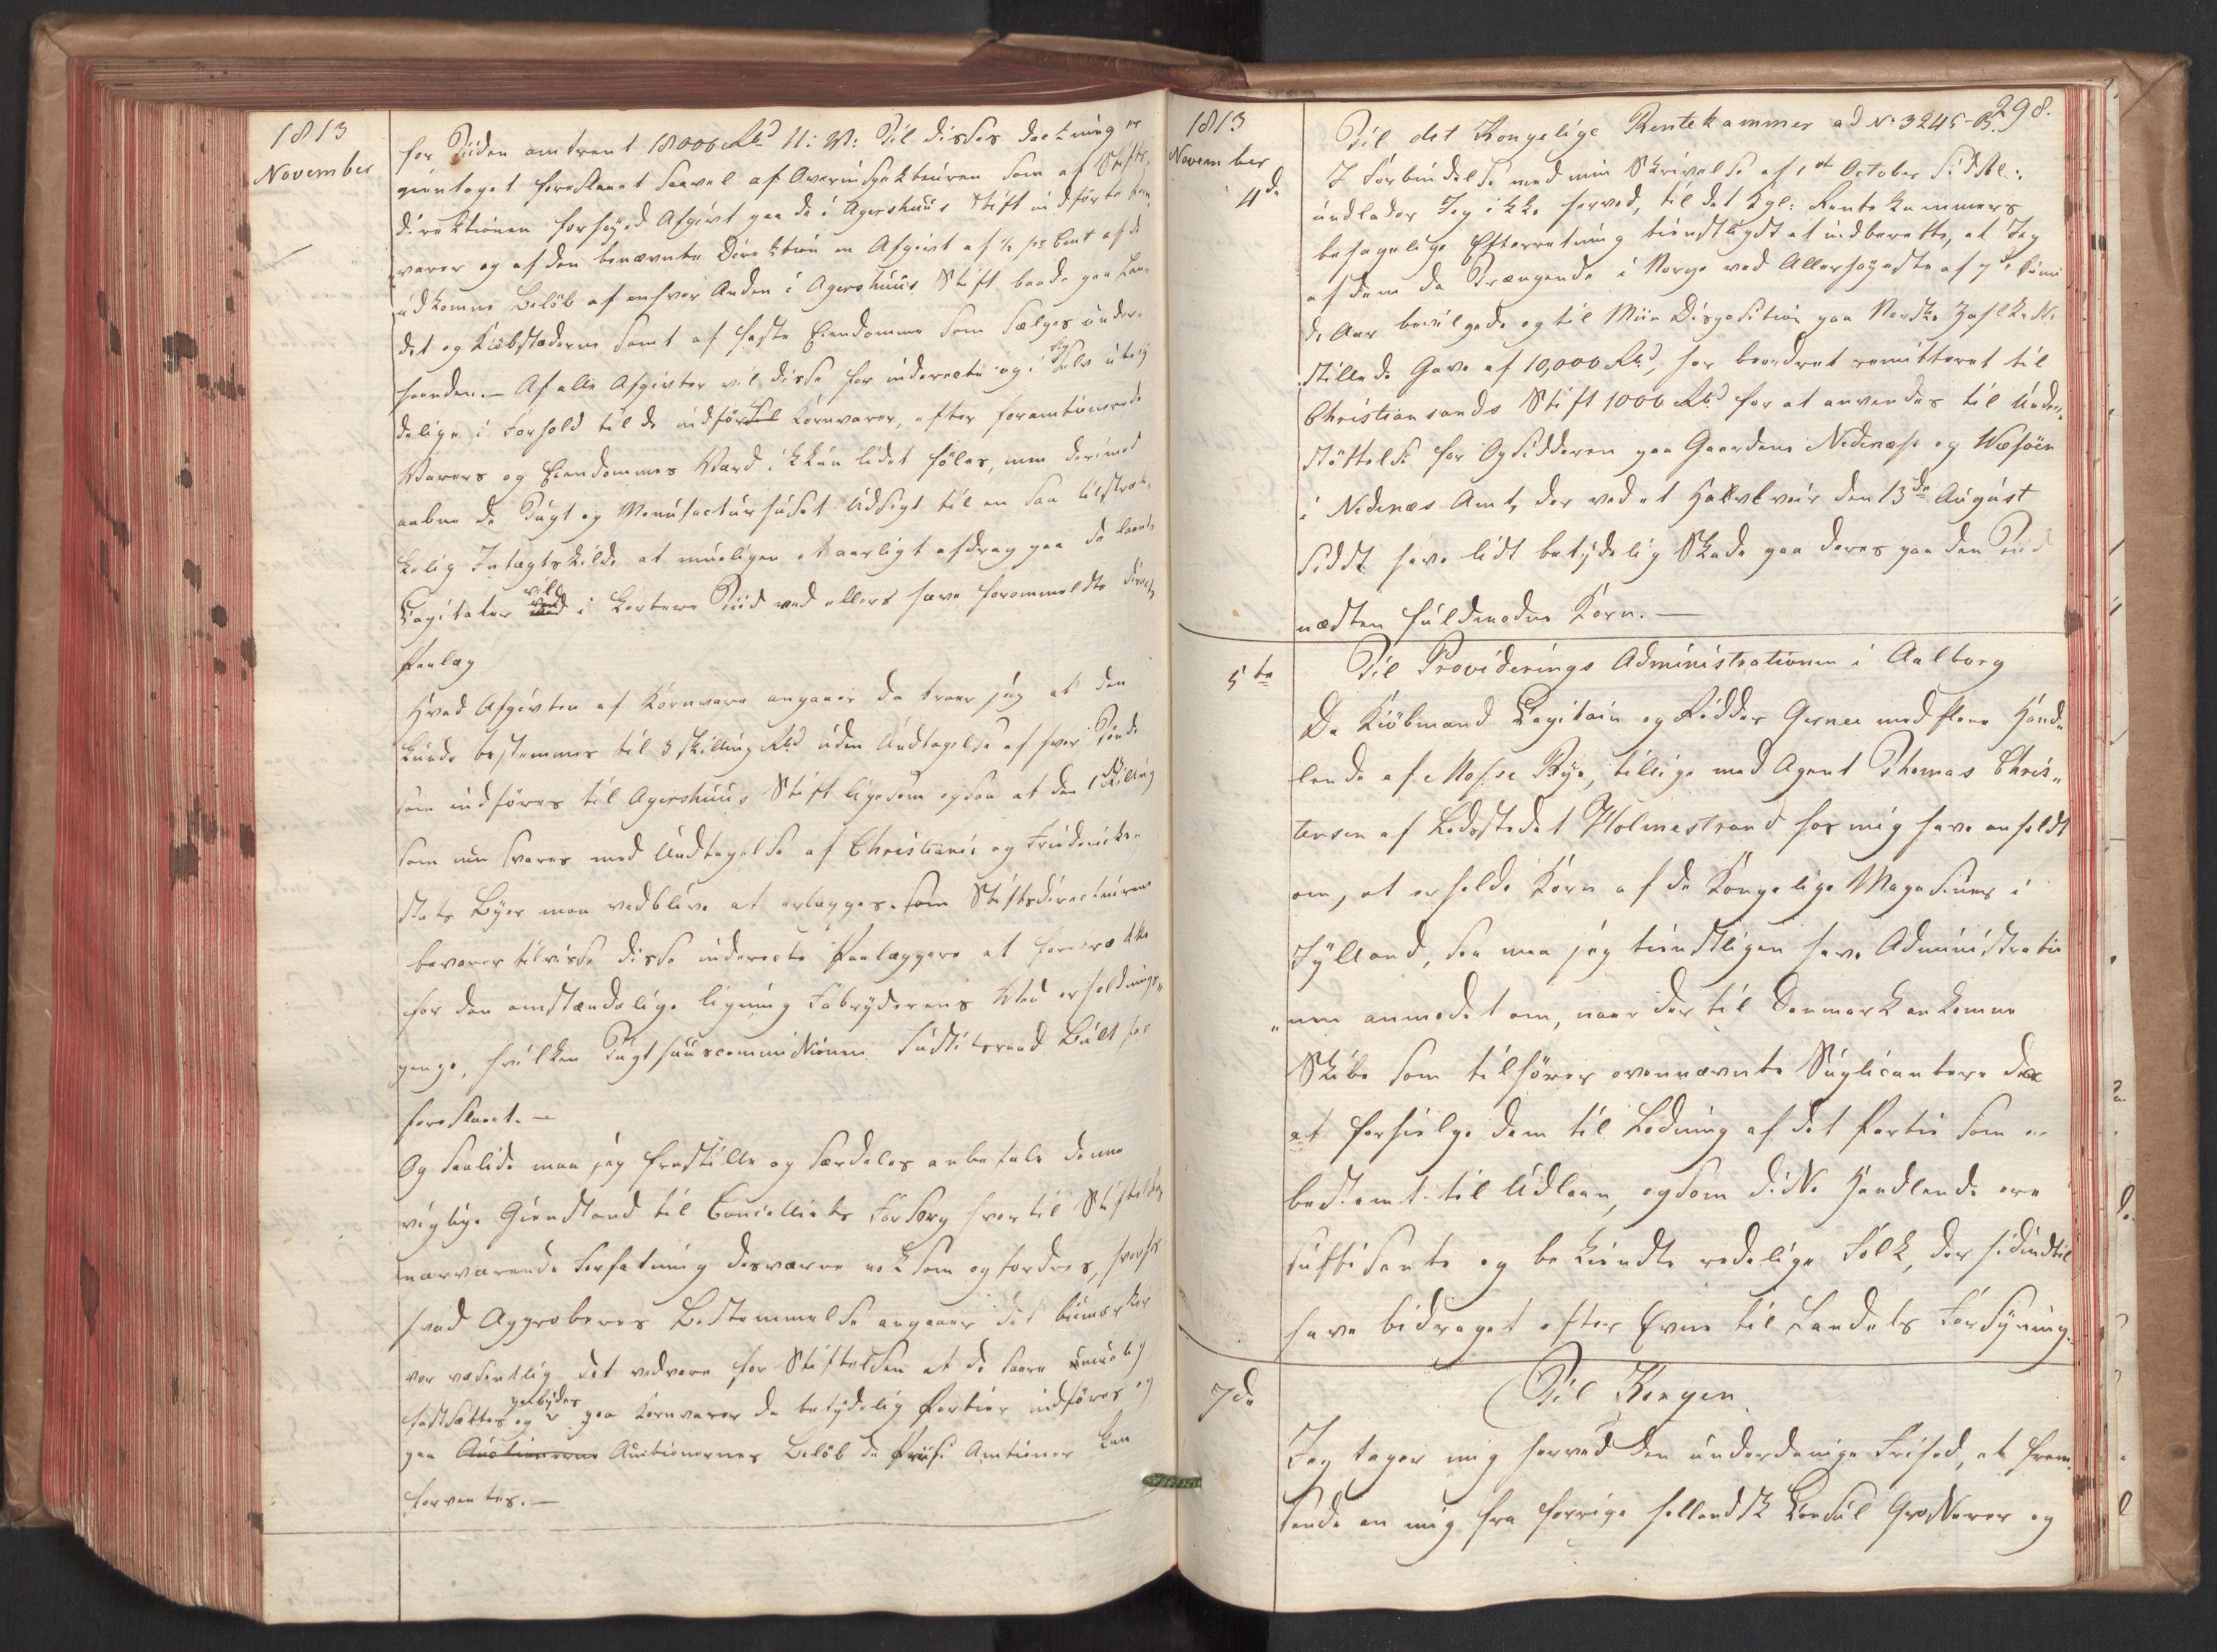 1813
November
for Tiiden omtrent 18000 Rbd N: V: Til disses Dækning er
gientaget foreslaaet saavel af Overinspekteuren som af Stifts-
direktionen forhøyed Afgivt paa de i Agershuus Stift indførte Korn
varer og af den benævnte Direktion en Afgivt af ½ pr Cent af de
udkomne Beløb af enhver Anden i Agershuus Stift baade paa Lan-
det og Kiøbstæderne samt af faste Eiendomme som sælges under-
haanden. Af alle Afgivter vil disse for inderecte og i sig Selv ubety
delige i Forhold til de indførte Kornvarer, efter foramtionerede
Varers og Eiendommes Værd ikkun lidet føles, men derimod
aabne de Tugt og Manufacturhuset Udsigt til en saa tilstræk-
kelig Indtægtskilde at mueligen et aarligt Afdrag paa de laante
Capitaler vil i kortere Tiid end ellers have foranmeldte direct
Paalæg
Hvad Afgivten af Kornvare angaaer da troer jeg at den
kunde bestemmes til 3 skilling Rbd uden Undtagelse af hver Tønde
som indføres til Agershuus Stift ligesom ogsaa at den 1 Skilling
som nu svares med Undtagelse af Christiania og Friderichs-
stads Byer maa vedblive at erlægges. som Stiftsdirecteurene
bevarer tilvisse disse inderecte Paalæggere at foretrække
for den omstændelige ligning Fabryderens Ved erholdnings-
penge, hvilken Tugthuuscommissionen Justitsraad Bull har
foreslaaet. —
Og saalede maa jeg fremstille og særdeles anbefale denne
vigtige Gienstand til Cancelliets Forsorg hvortil Stiftelsens
nærværende Forfatning desværre nok som opfordres, hvorfor
hvad Aggrobers Bestemmelse angaaer
var væsentlig det vedvare for Stiftelsen at de saare umuelig
fastsættes og paabydes paa Kornvarer da betydelig Partier indføres og
paa Auctionerne Auctionernes Beløb da Priise Auctioner kan
forventes. —
1813
November
4de
298.
Til det Kongelige Rentekammer ad No 3245-B.
I Forbindelse med min Skrivelse af 1st October sidstl:
undlader Jeg ikke herved, til det kgl: Rente kammers
behagelige Efterretning tienstligst at indberette, at Jeg
af den de Trængende i Norge ved Allerhøyeste af 7de Juni
d. Aar bevilgede og til Min Disposition paa Norske Zahlkasse
stillede Gave af 10,000 Rbd, har beordret remitteret til
Christiansands Stift 1000 Rbd for at anvendes til Under-
støttelse for Opsidderen paa Gaardene Nedenæs og Wæsøen
i Nedenæs Amt, der ved et Haglveir den 13de August
sidst have lidt betydelig Skade paa deres paa den Tiid
næsten fuldmodne Korn. —
5te
Til Providerings Administrationen i Aalborg
Da Kiøbmand Capitain og Ridder Gerner med flere Hand-
lende af Mosse Bye, tillige med Agent Thomas Chris-
tensen af Ladestedet Holmestrand hos mig have anholdt
om, at erholde Korn af de Kongelige Magasiner i
Jylland, saa maa jeg tienstligen have Administratio-
nen anmodet om, naar der til Danmark ankomne
Skibe som tilhører ovennævnte Suplicantere da
at forhielpe dem til Ladning af det Partie som er
bestemt til Udlaan, og som disse Handlende ere
suffisante og bekiendte redelige Folk, der hidindtil
have bidraget efter Evne til Landets Forsyning.
7de
Til Kongen.
Jeg tager mig herved den underdanige Frihed, at frem-
sende en mig fra forrige hollandsk Consul Grosserer og